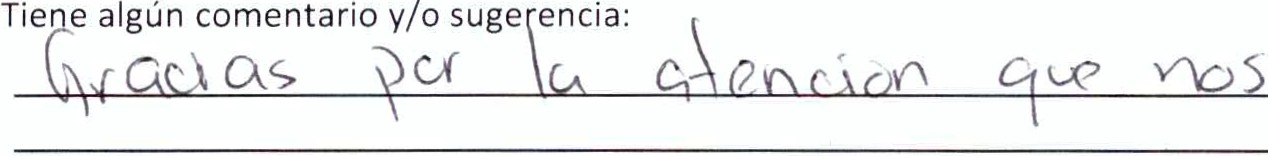 Tiene algún comentario y/o sugerencia:
Gracias por la atencion que nos